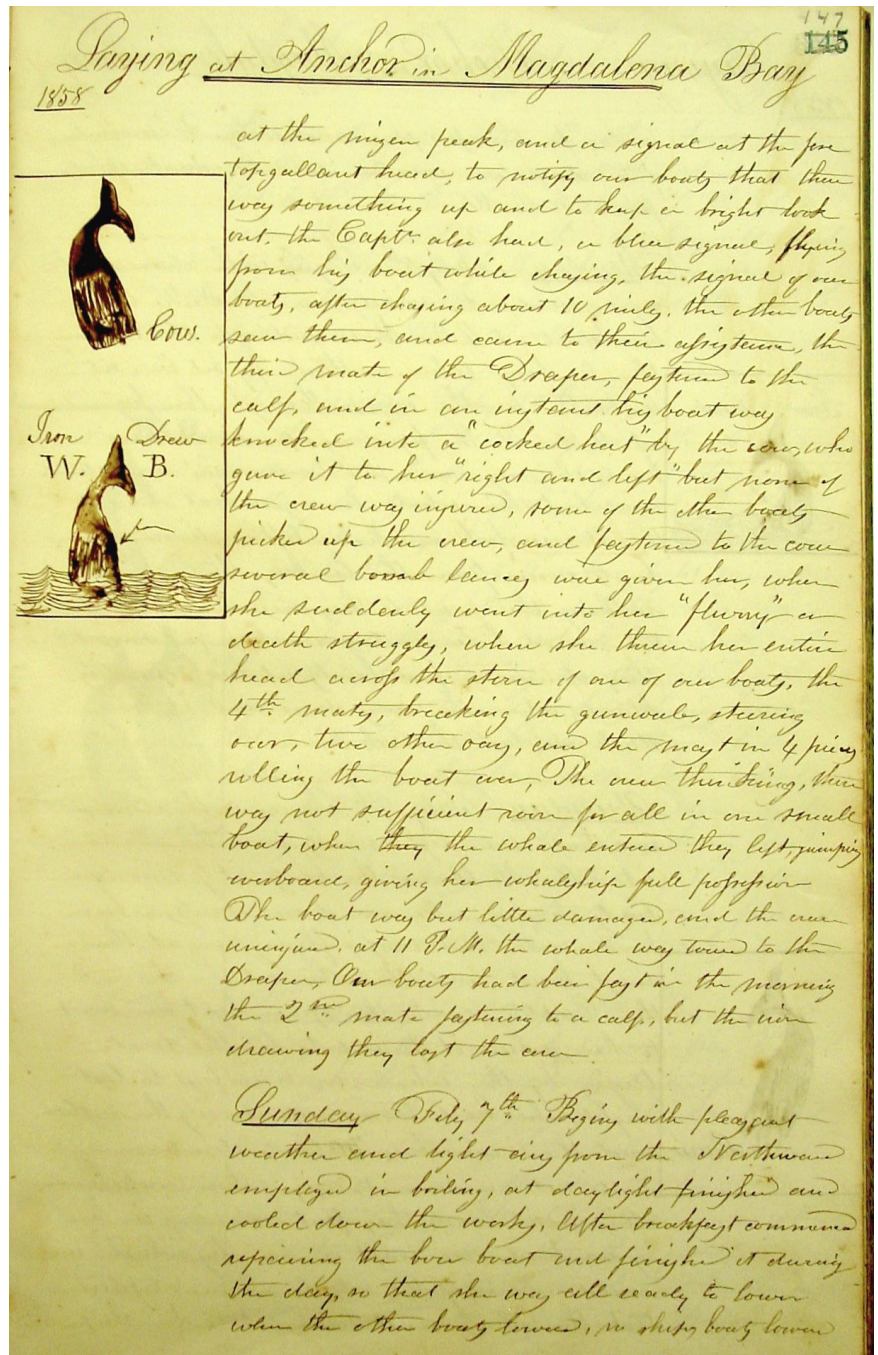 147
145
Laying at Anchor in Magdalena Bay
1858
at the mizen peak, and a signal at the fore
topgallant head, to notify our boats that there
was something up and to keep a bright look
out. the Captn. also had, a blue signal, flying
from his boat while chasing, the signal of our
boats, after chasing about 10 miles. the other boats
saw them, and came to their assistance, the
third mate of the Draper, fastened to the
calf, and in an instant his boat was
knocked into a "cocked hat" by the cow, who
gave it to her "right and left" but none of
the crew was injured, some of the other boats
picked up the crew, and fastened to the cow
several bomb lances were given her, when
she suddenly went into her "flurry" or
death struggle, when she threw her entire
head across the stern of one of our boats, the
4th. mates, breaking the gunwale, steering
oar, two other oars, and the mast in 4 pieces
rolling the boat over, The crew thinking, there
was not sufficient room for all in one small
boat, when they the whale entered they left, jumping
overboard, giving her whaleship full possession
The boat was but little damaged, and the crew
uninjured. at 11 P.M. the whale was towed to the
Draper, Our boats had been fast in the morning
the 2nd. mate fastening to a calf, but the iron
drawing they lost the cow
Sunday Feby 7th. Begins with pleasant
weather and light airs from the Northward
employed in boiling, at daylight finished and
cooled down the works, After breakfast commenced
repairing the bow boat and finished it during
the day, so that she was all ready to lower
when the other boats lowered, no ships boats lowered
Cow.
Iron Drew
W. B.